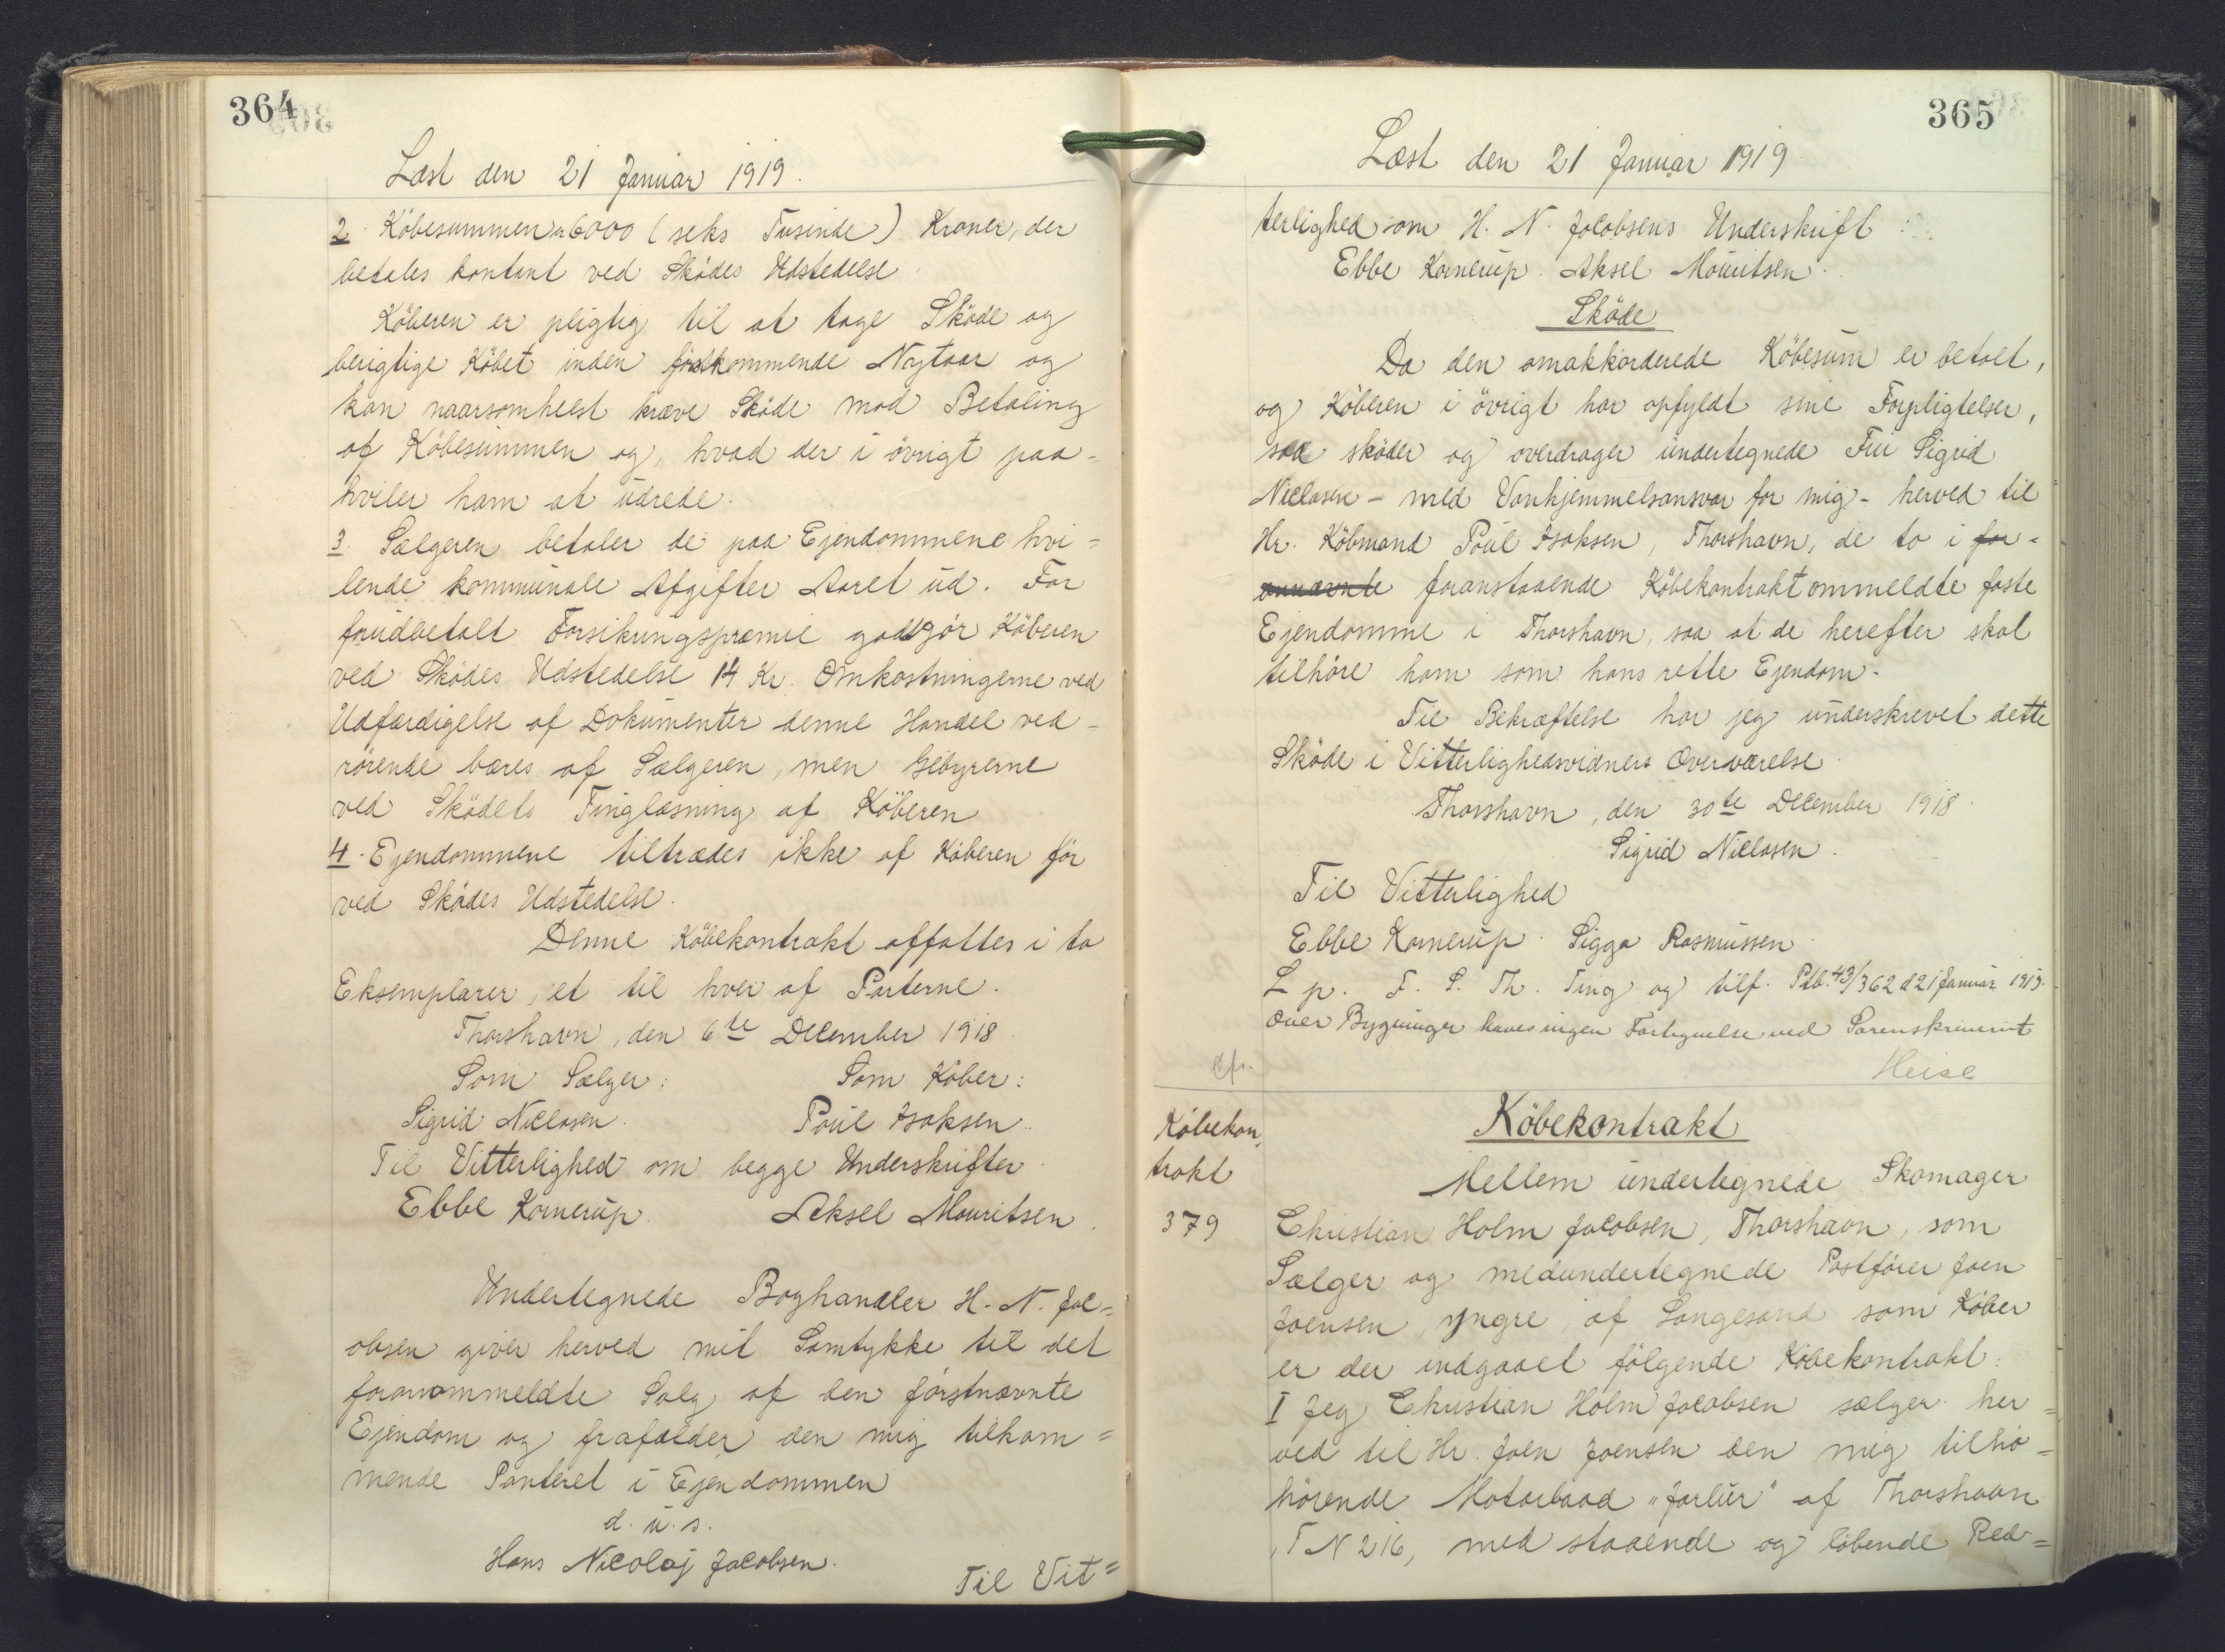 364
Læst den 21 Januar 1919.
2. Köbesummen er 6000 (seks Tusinde) Kroner, der
betales kontant ved Sködes Udstedelse
Köberen er pligtig til at tage Sköde og
berigtige Köbet inden förstkommende Nytaar og
kan naarsomhelst kræve Sköde mod Betaling
af Köbesummen og, hvad der i övrigt paa-
hviler ham at udrede.
3 Sælgeren betaler de paa Ejendommene hvi=
lende kommunale Afgifter Aaret ud. For
forudbetalt Forsikringspræmie godtgör Köberen
ved Sködes Udstedelse 14 Kr. Omkostningerne ved
Udfærdigelse af Dokumenter denne Handel ved-
rörende bæres af Sælgeren, men Gebyrerne
ved Sködets Tinglæsning af Köberen
4. Ejendommene tiltrædes ikke af Köberen för
ved Sködes Udstedelse.
Denne Köbekontrakt affattes i to
Eksemplarer, et til hver af Parterne.
Thorshavn, den 6te December 1918
Som Sælger: Som Köber:
Sigrid Niclasen. Poul Isaksen.
Til Vitterlighed om begge Underskrifter.
Ebbe Kornerup. Aksel Mouritsen.
Undertegnede Boghandler H. N. Jac=
obsen giver herved mit Samtykke til det
foranommeldte Salg af den förstnævnte
Ejendom og frafalder den mig tilkom=
mende Panteret i Ejendommen
d. u. s.
Hans Nicolaj Jacobsen.
Til Vit=
365
Læst den 21 Januar 1919
terlighed om H. N. Jacobsens Underskrift:
Ebbe Kornerup. Aksel Mouritsen.
Sköde
Da den omakkorderede Köbesum er betalt,
og Köberen i övrigt har opfyldt sine Forpligtelser,
saa sköder og overdrager undertegnede Fru Sigrid
Niclasen - med Vanhjemmelsansvar for mig - herved til
Hr. Köbmand Poul Isaksen, Thorshavn, de to i for-
annævnte foranstaaende Köbekontrakt ommeldte faste
Ejendomme i Thorshavn, saa at de herefter skal
tilhöre ham som hans rette Ejendom.
Til Bekræftelse har jeg underskrevet dette
Sköde i Vitterlighedsvidners Overværelse.
Thorshavn, den 30te December 1918.
Sigrid Niclasen.
Til Vitterlighed
Ebbe Kornerup. Sigga Rasmussen.
L p. F. S. Th. Ting og tilf. Ptb. 43/362 d 21 Januar 1919.
Over Bygninger haves ingen Fortegnelse ved Sorenskriveriet
Cfr.
Heise
Köbekon,
trakt
379
Köbekontrakt
Mellem undertegnede Skomager
Christian Holm Jacobsen, Thorshavn, som
Sælger og medundertegnede Postförer Joen
Joensen, yngre, af Sangesand som Köber
er der indgaaet fölgende Köbekontrakt:
I Jeg Christian Holm Jacobsen sælger her=
ved til Hr. Joen Joensen den mig tilhö=
hörende Motorbaad "Jarlur" af Thorshavn
TN 216, med staaende og löbende Red=